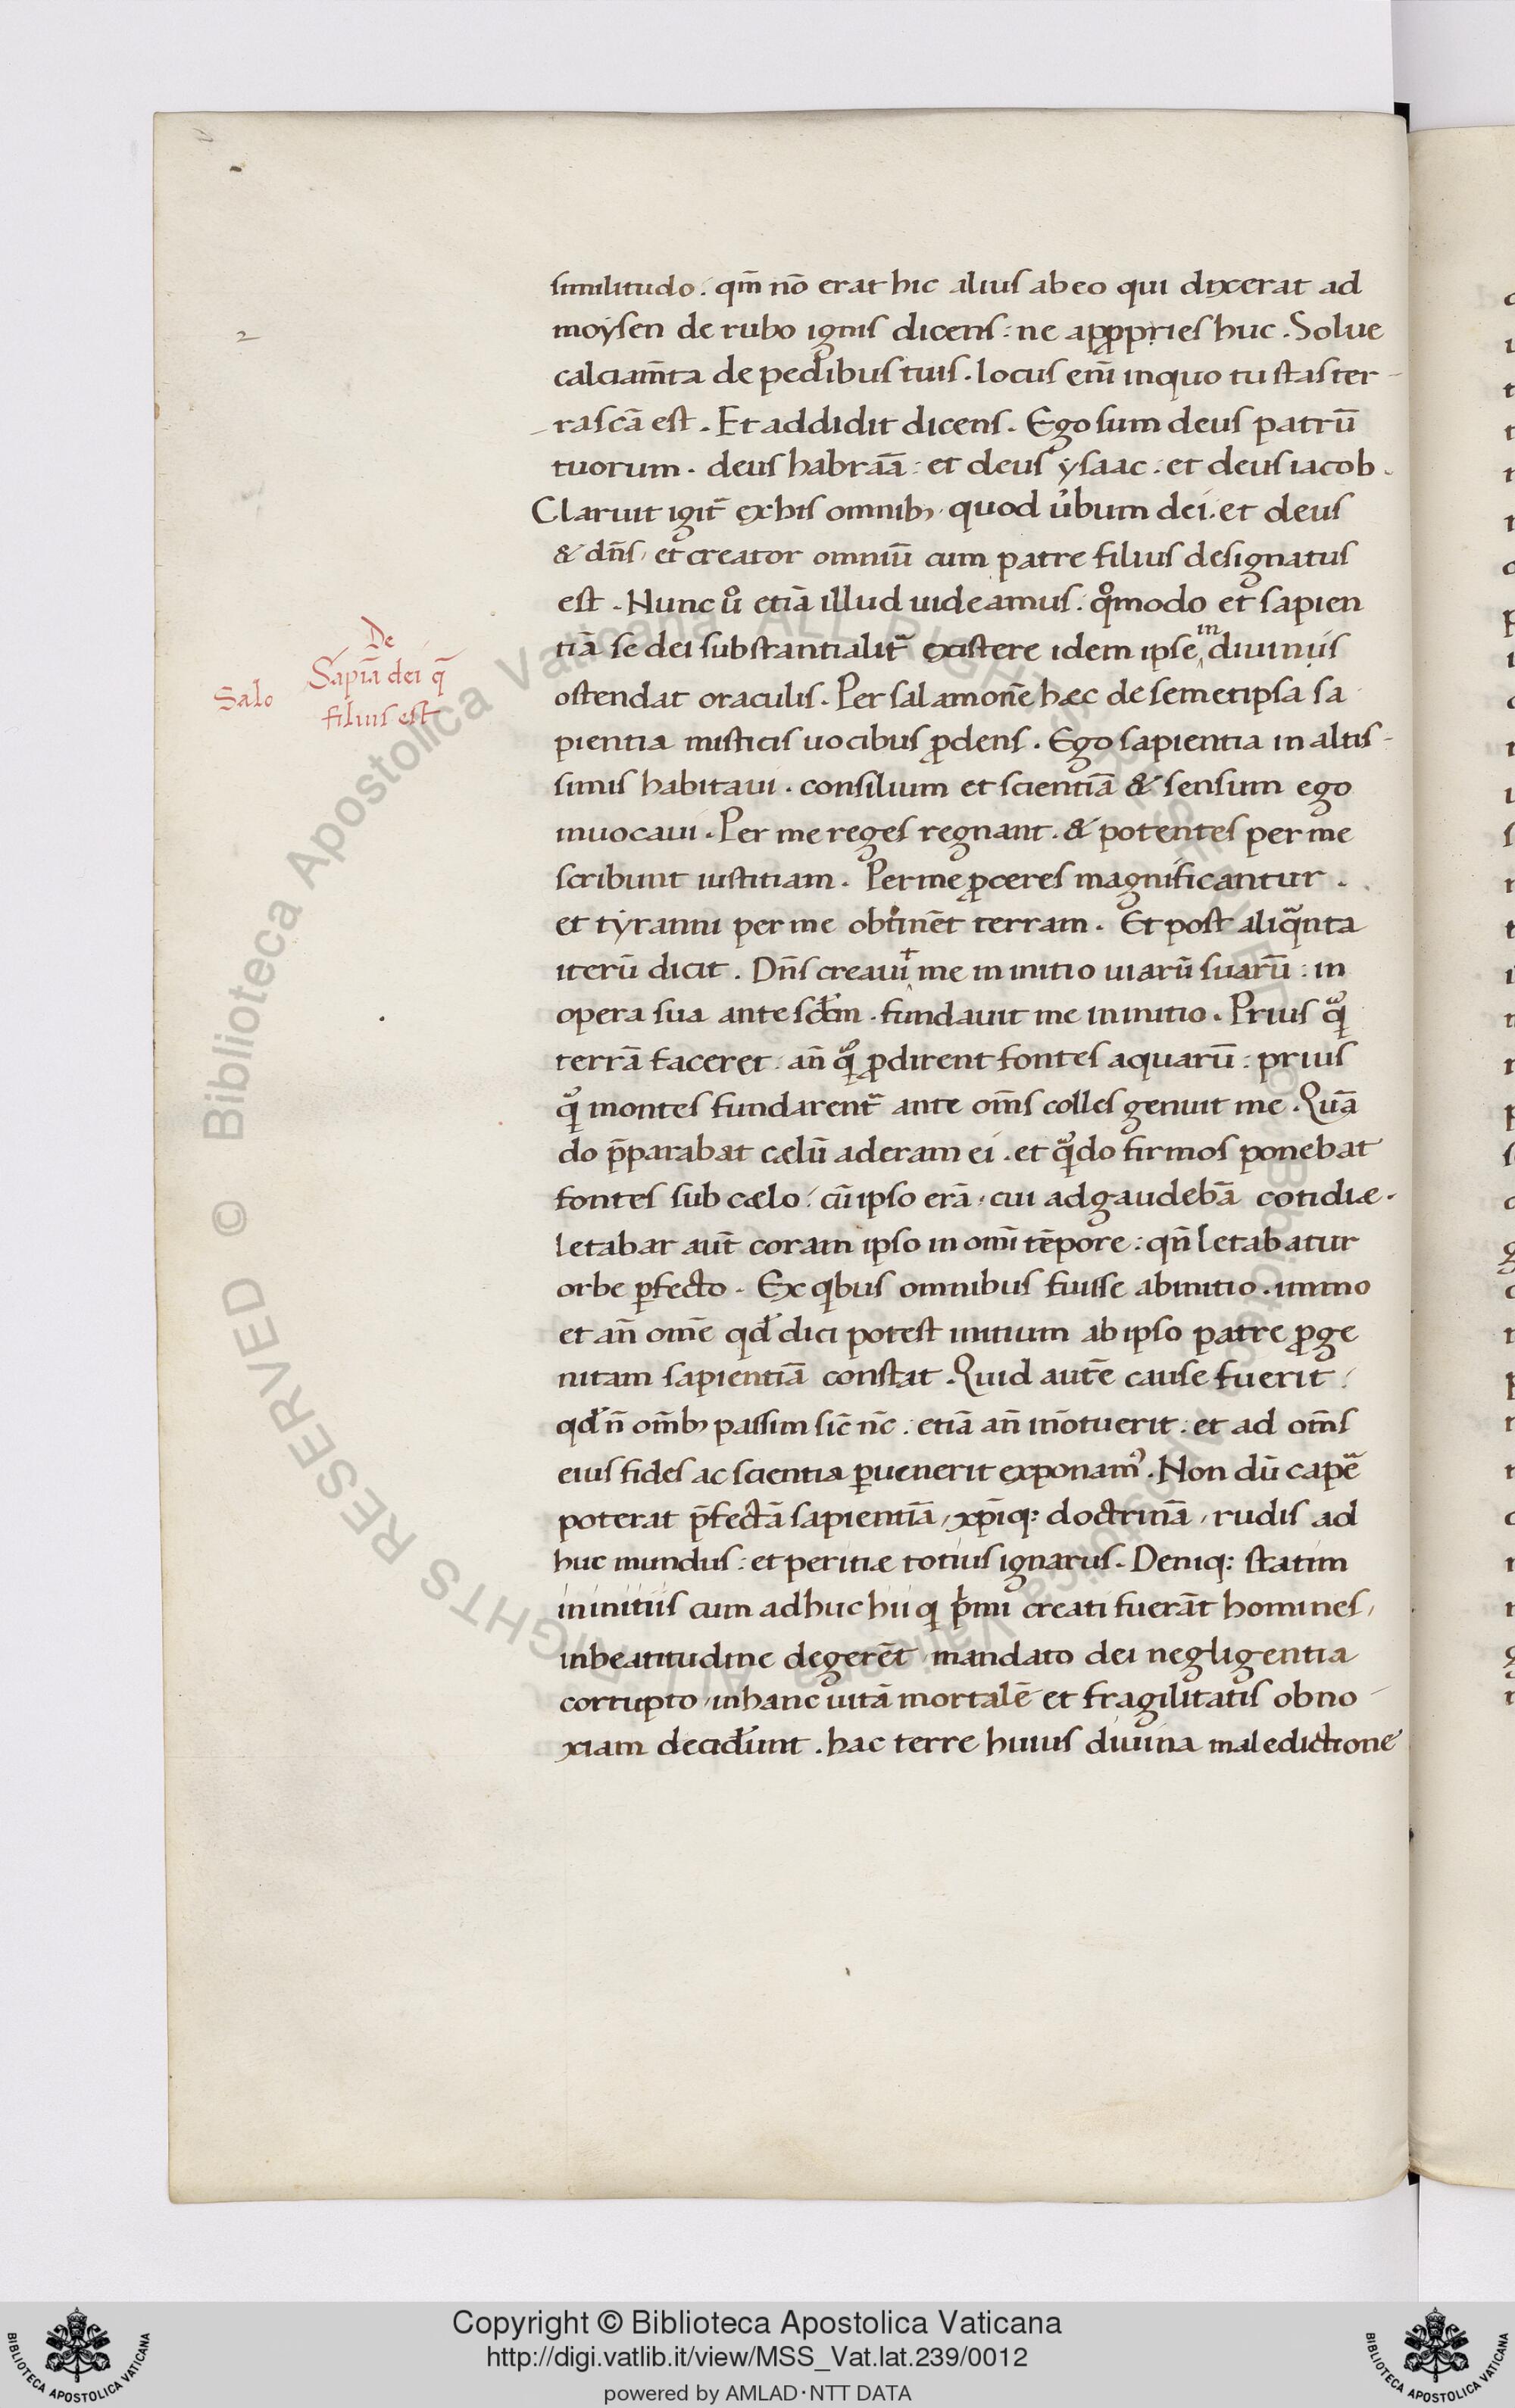 similitudo : qm̄ nō erat hic alius ab eo qui dixerat ad
moẏsen de rubo ignis dicens : ne appropries huc . Solue
calciam̄ta de pedibus tuis . locus eni̅ inquo tu stas ter-
ra sc̄a est . Et addidit dicens . Ego sum deus patrū
tuorum . deus habraā : et deus ẏsaac : et deus iacob .
Claruit igit᷑ ex his omnibꝫ quod u̓bum dei . et deus
& dn̄s , et creator omniū cum patre filius designatus
est . Nunc uͦ etiā illud uideamus . qͦmodo et sapien
tiā se dei substantialit᷑ existere idem ipse in diuinis
ostendat oraculis . Per salamonē hæc de semetipsa sa
pientia misticis uocibus ꝓdens . Ego sapientia in altis-
simis habitaui . consilium et scientiā & sensum ego
inuocaui . Per me reges regnant . & potentes per me
scribunt iustitiam . Per me ꝓceres magnificantur .
et tẏranni per me obtinēt terram . Et post aliqᷓnta
iterū dicit . Dn̄s creauit me in initio uiarū suarū : in
opera sua ante scl̄m . fundauit me in initio . Prius qᷓꝫ
terrā faceret . an̄ qᷓꝫ ꝓdirent fontes aquarū : prius
qᷓꝫ montes fundarent᷑ ante om̄s colles genuit me . Quā
do p̄parabat cælū aderam ei . et qᷓꝫdo firmos ponebat
fontes sub cælo : cū ipso erā , cui adgaudebā cotidiæ .
letabar aut̄ coram ipso in omī tēpore : qn̄ letabatur
orbe ꝑfecto . Ex qibus omnibus fuisse ab initio . immo
et an̄ omē qd̓ dici potest initium ab ipso patre ꝓge
nitam sapientiā constat . Quid autē cause fuerit :
qd̓ n̄ om̄bꝫ passim sic̄ nc̄ : etiā an̄ inōtuerit : et ad om̄s
eius fides ac scientia ꝑuenerit exponamꝰ . Non dū cape᷑
poterat p̄fectā sapientiā , xp̄iqꝫ doctrinā , rudis ad
huc mundus : et peritiæ totius ignarus . Deniqꝫ statim
in initiis cum adhuc hii qi pͥmi creati fuerāt homines ,
in beatitudine degerēt , mandato dei negligentia
corrupto , in hanc uitā mortalē et fragilitatis obno
xiam decider̄unt . hac terre huius diuina maledictione
2
De
Sapiā dei q̄
filius est
Salo
© Biblioteca Apostolica Vaticana ALL RIGHTS RESERVED
Copyright © Biblioteca Apostolica Vaticana
http://digi.vatlib.it/view/MSS_Vat.lat.239/0012
powered by AMLAD·NTT DATA
BIBLIOTECA APOSTOLICA VATICANA
BIBLIOTECA APOSTOLICA VATICANA